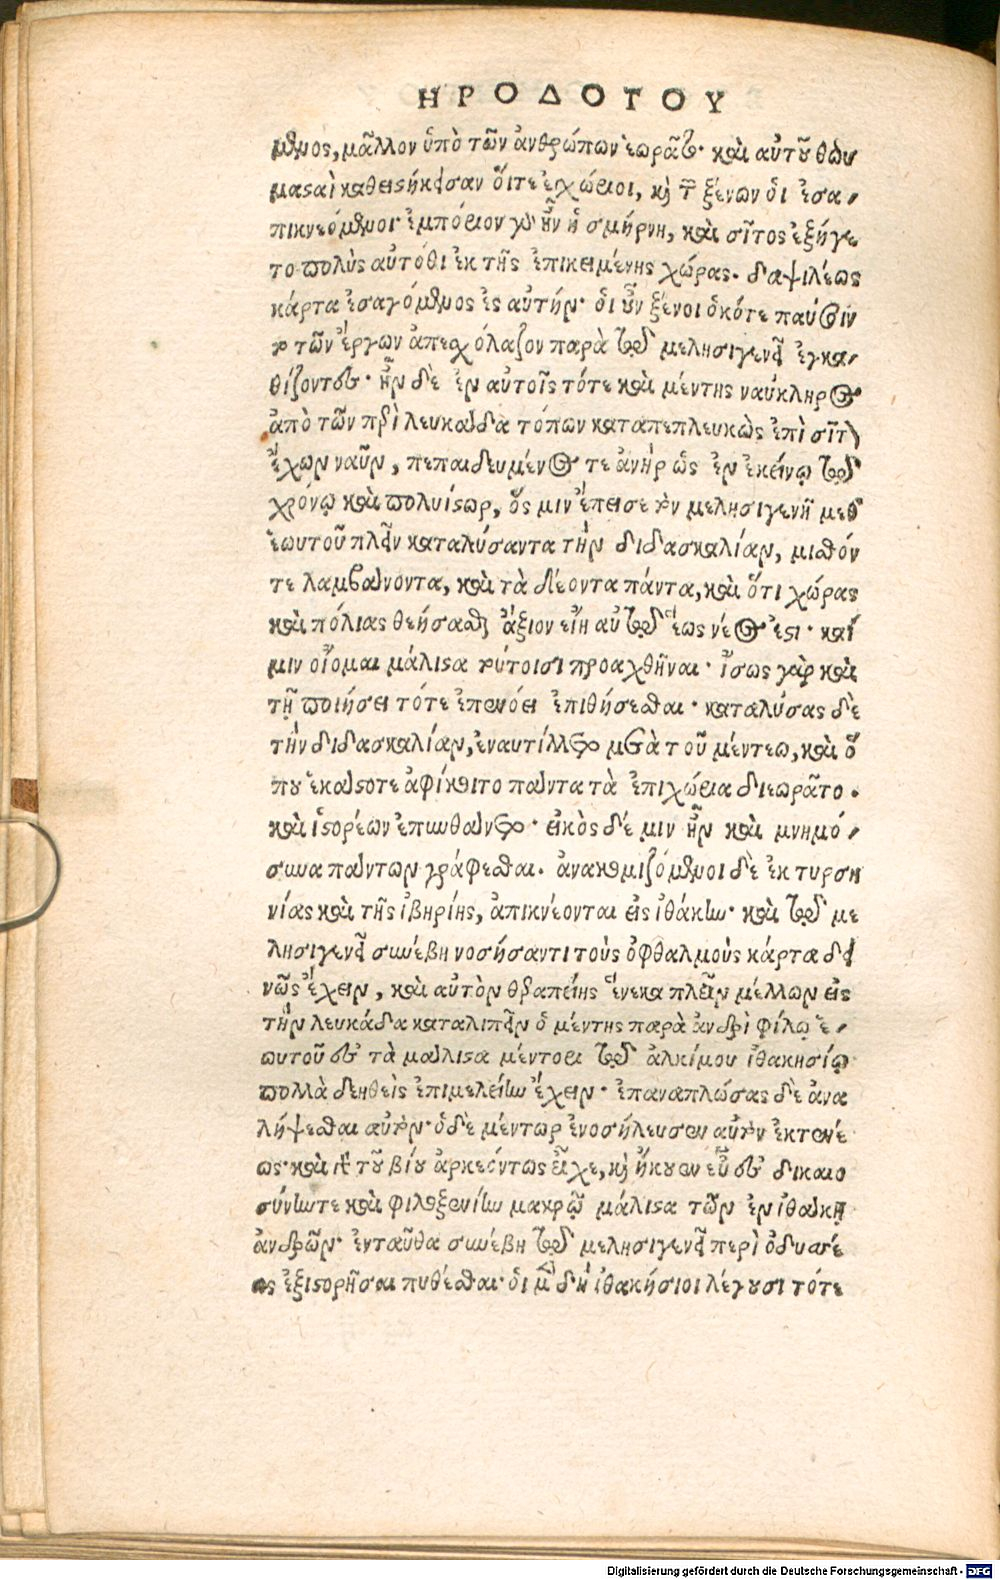 ΗΡΟΔΟΤΟΥ
μενος, μᾶλλον ὑπὸ τῶν ἀνθρώπων ἑωρᾶτο· καὶ αὐτοῦ θωυ
μασαὶ καθειστήκεισαν ὅι τε ἐγχώριοι, καὶ τῶν ξένων ὁι ἐσα-
πικνεόμενοι· ἐμπόριον γὰρ ἦν ἡ σμήρνη, καὶ σῖτος ἐξήγε
το πολὺς αὐτόθι ἐκ τῆς ἐπικειμένης χώρας. δαψιλέως
κάρτα ἐσαγόμενος ἐς αὐτήν· ὁι οὖν ξένοι ὁκότε παύσοιν
το τῶν ἔργων ἀπεσχόλαζον παρὰ τῷ μελησιγενεῖ ἐγκα-
θίζοντες· ἦν δὲ ἐν αὐτοῖς τότε καὶ μέντης ναύκληρος
ἀπὸ τῶν περὶ λευκάδα τόπων καταπεπλευκὼς ἐπὶ σῖτον
ἔχων ναῦν, πεπαιδευμένος τε ἀνὴρ ὡς ἐν ἐκείνῳ τῷ
χρόνῳ καὶ πολυίστωρ, ὅς μιν ἔπεισε τὸν μελησιγενῆ μεθ
ἑωυτοῦ πλεῖν καταλύσαντα τὴν διδασκαλίαν, μισθόν
τε λαμβάνοντα, καὶ τὰ δέοντα πάντα, καὶ ὅτι χώρας
καὶ πόλιας θεήσασθαι ἄξιον εἴη αὐτῷ ἕως νέος ἐστι· καί
μιν οἴομαι μάλιστα τούτοισι προαχθῆναι· ἴσως γὰρ καὶ
τῇ ποιήσει τότε ἐπενόει ἐπιθήσεσθαι· καταλύσας δὲ
τὴν διδασκαλίαν, ἐναυτίλλετο μετὰ τοῦ μέντεω, καὶ ὅ
που ἑκάστοτε ἀφίκοιτο πάντα τὰ ἐπιχώρια διεωρᾶτο.
καὶ ἱστορέων ἐπυνθάνετο· εἰκὸς δέ μιν ἦν καὶ μνημό-
συνα πάντων γράφεσθαι. ἀνακομιζόμενοι δὲ ἐκ τυρση
νίας καὶ τῆς ἰβηρίης, ἀπικνέονται εἰς ἰθάκην· καὶ τῷ με
λησιγενεῖ συνέβη νοσήσαντι τοὺς ὀφθαλμοὺς κάρτα δει
νῶς ἔχειν, καὶ αὐτὸν θεραπείης ἕνεκα πλεῖν μέλλων εἰς
τὴν λευκάδα καταλιπεῖν ὁ μέντης παρὰ ἀνδρὶ φίλῳ ἑ-
ωυτοῦ ἐς τὰ μάλιστα μέντορι τῷ ἀλκίμου ἰθακησίῳ
πολλὰ δεηθεὶς ἐπιμελείην ἔχειν· ἐπαναπλώσας δὲ ἀνα
λήψεσθαι αὐτόν· ὁ δὲ μέντωρ ἐνοσήλευσεν αὐτὸν ἐκτενέ
ως· καὶ τοῦ βίου ἀρκεόντως εἶχε, καὶ ἤκουεν εὖ ἐς δικαιο
σύνην τε καὶ φιλοξενίην μακρῷ μάλιστα τῶν ἐν ἰθάκῃ
ἀνδρῶν· ἐνταῦθα συνέβη τῷ μελησιγενεῖ περὶ ὀδυσσέ
ος ἐξιστορῆσαι πυθέσθαι· ὁι μὲν δὴ ἰθακήσιοι λέγουσι τότε
Digitalisierung gefördert durch die Deutsche Forschungsgemeinschaft - DFG